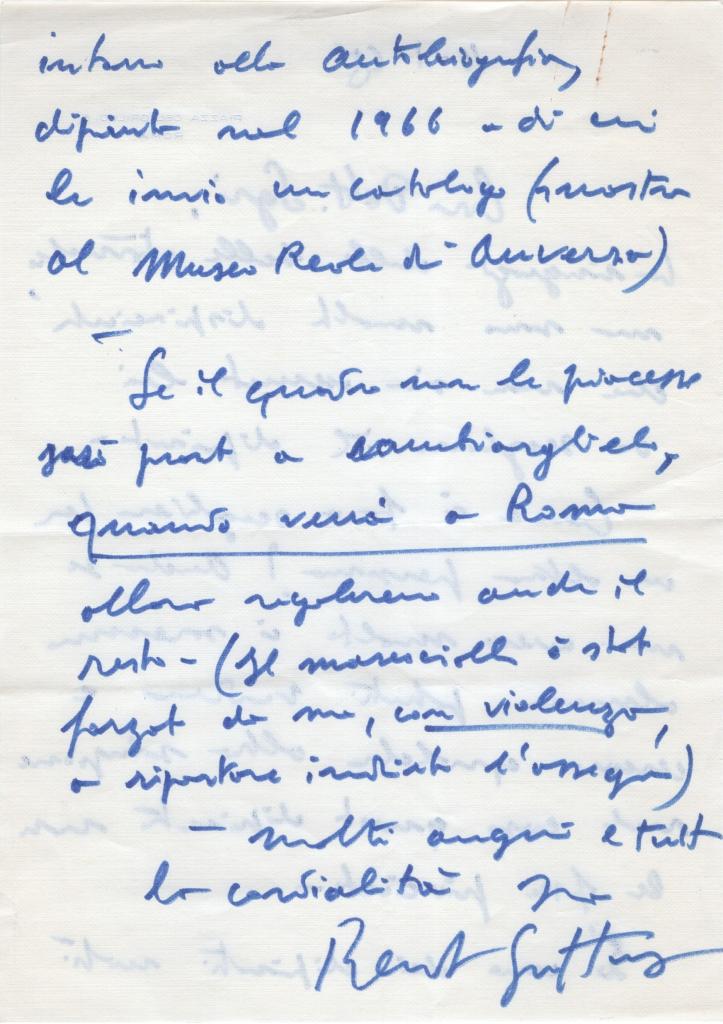 intorno alla autobiografia,
dipinta nel 1966 e di cui
le invio un catalogo (mostra
al Museo Reale di Anversa)
— Se il quadro non le piacesse
sarò pronto a cambiarglielo,
quando verrà a Roma
allora regoleremo anche il
resto – (Il maresciallo è stato
forzato da me, con violenza,
a riportare indietro l'assegno)
– molti auguri e tutta
la cordialità suo
Renato Guttuso